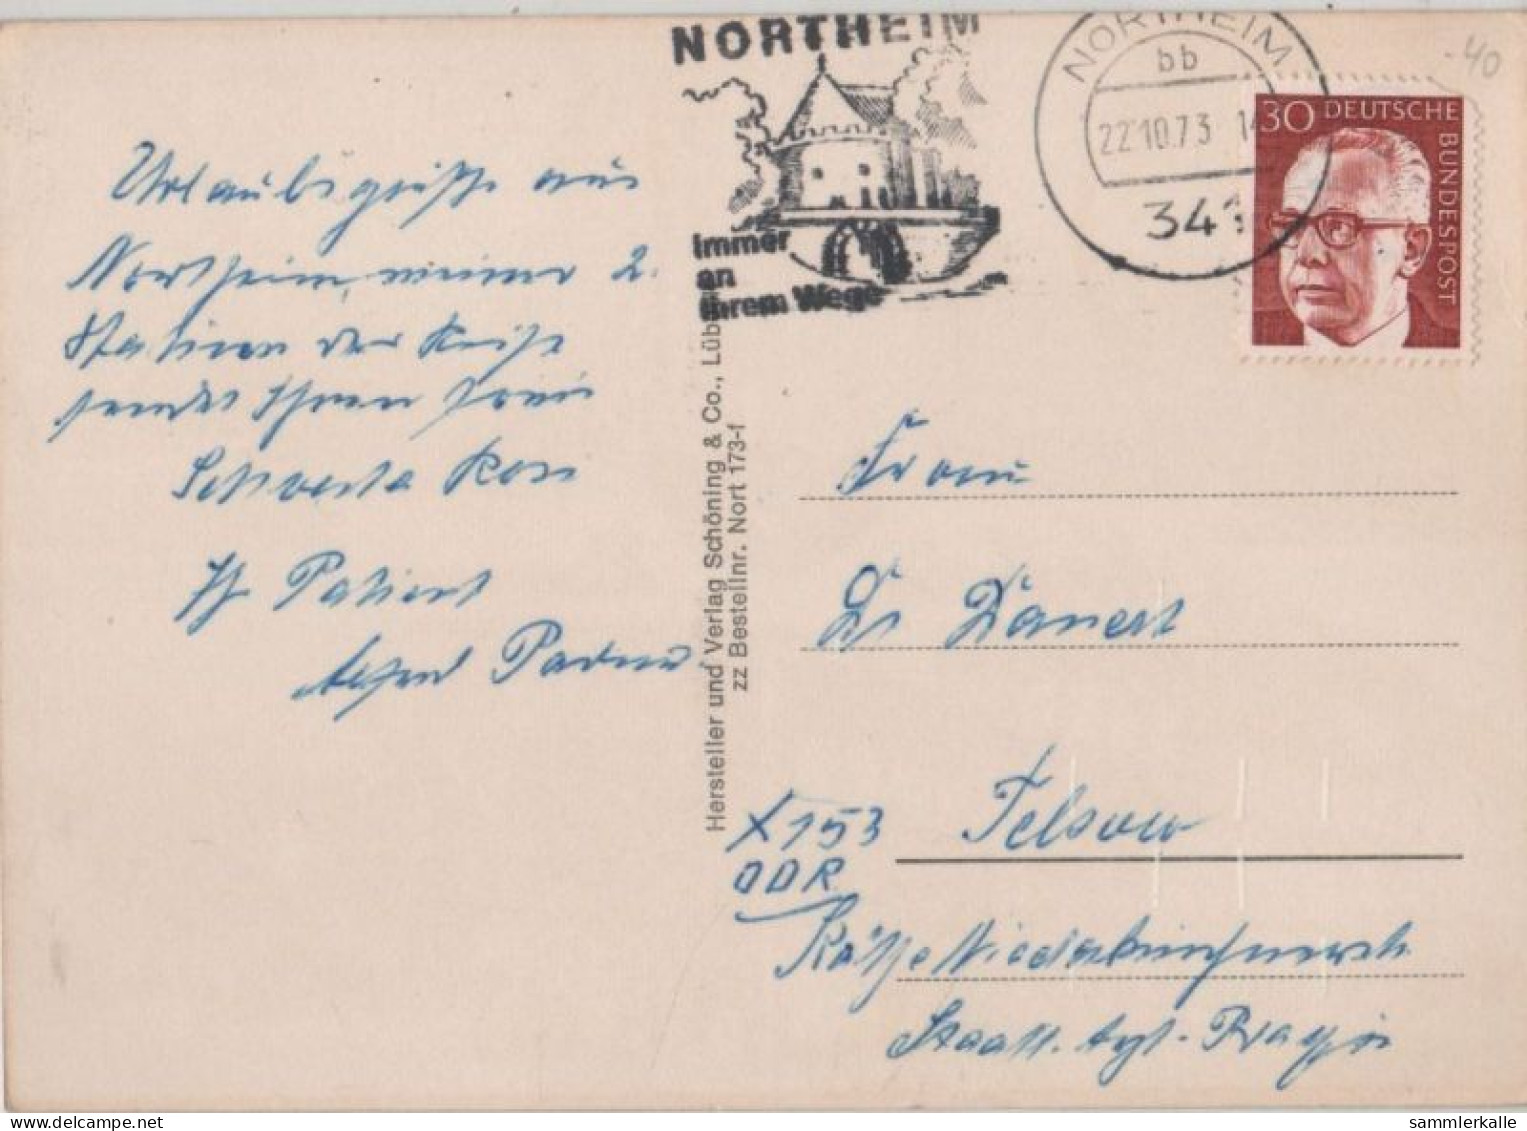 NORTHEIM
immer
an
Ihrem Wege
NORTHEIM
bb
22.10.73
341
30 DEUTSCHE
BUNDESPOST
-40
Urlaubsgrüße aus
Northeim, meiner 2.
Station der Reise
sendet Ihnen sowie
Schwester Rosi
Ihr Patient
Alfred
Hersteller und Verlag Schöning & Co., Lüb
zz Bestellnr. Nort 173-f
Frau
Dr Danert
Teltow
X 153
DDR
Käthe Niederkirchnerstr
Staatl. Arzt-Praxis
sammlerkalle